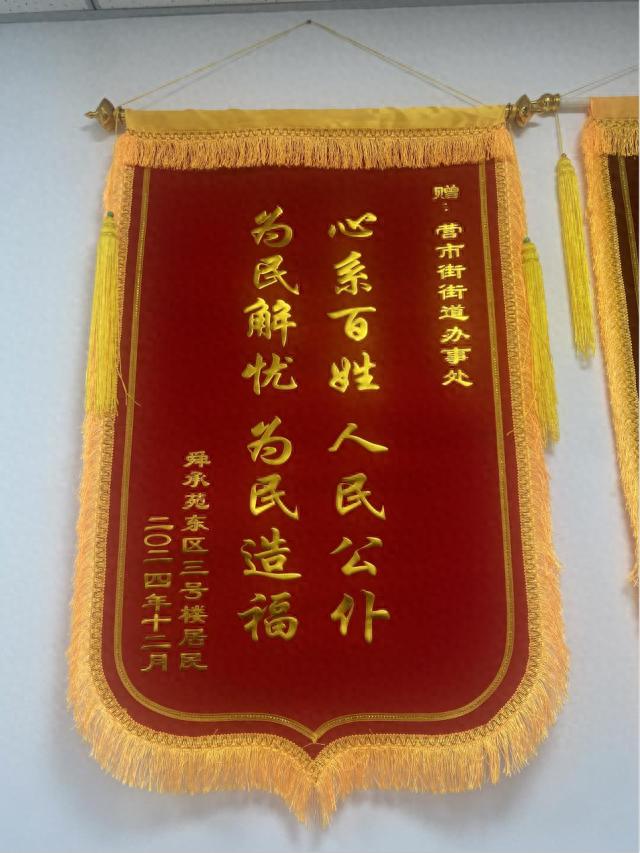 赠：营市街街道办事处
心系百姓 人民公仆
为民解忧 为民造福
舜承苑东区三号楼居民
二〇二四年十二月